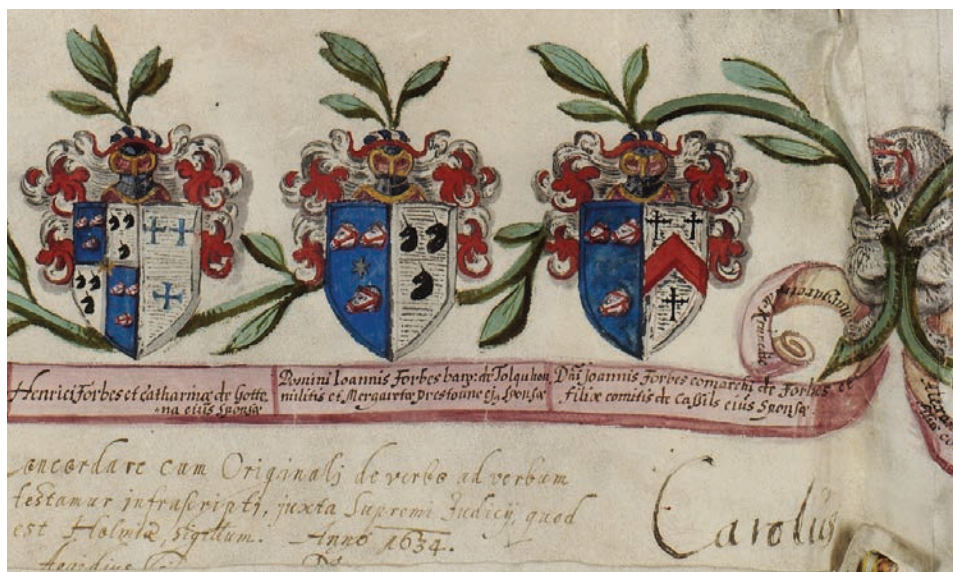 Henrici Forbes et Catharinæ de Gotte
na eius Sponsæ
Domini Ioannis Forbes baro: de Tolquhon
militis et Mergaretæ Prestoune ej9 Sponsæ
Dñi Joannis Forbes comarchi de Forbes et
filiæ comitis de Cassils eius Sponsæ
Mergaretæ
de Kennedie
Concordare cum Originalj de verbo ad verbum
testamur infrascripti, juxta Supremi Judicij, quod
est Holmiæ, sigillum. Anno 1634.
Carolus